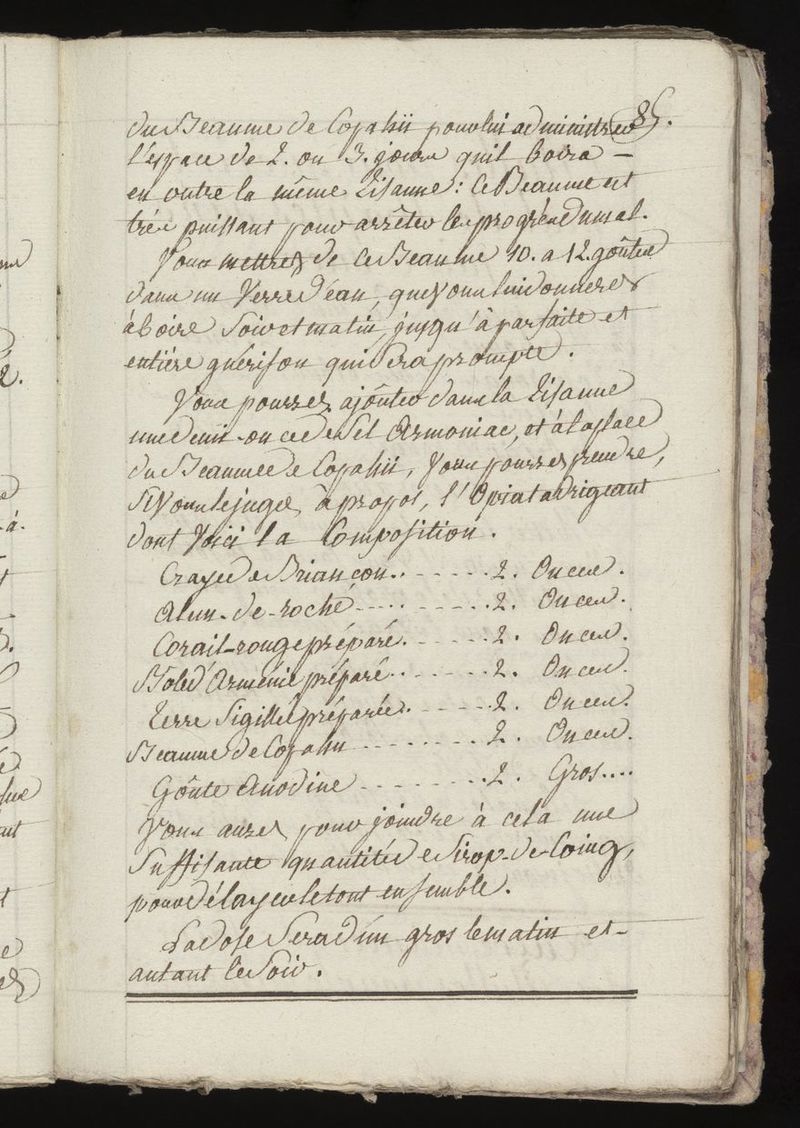 85.
du Beaume de Copahü pour lui administrer
l'espace de 2. ou 3. jours qu'il boira —
en outre la même Tisanne : Ce Beaume est
très puissant pour arrêter les progrès du mal.
Vous mettrez de ce Beaume 10. a 12. goûtes
dans un Verre d'eau, que vous lui donnerez
à boire Soir et matin, jusqu'à parfaite et
entière guérison qui sera prompte.
Vous pourrez ajoûter dans la Tisanne
une demi-once de Sel Armoniac, et à la place
du Beaume de Copahü, Vous pourrez prendre,
Si Vous le jugez à propos, l'Opiat adrigeant
dont Voici la Composition.
Craye de Briancon.. - - - - - 2. Onces.
Alun-de-roche - - - - - - 2. Onces.
Corail-rouge préparé. - - - - - 2. Onces.
Bol d'Arménie préparé. - - - - - 2. Onces.
Terre Sigillée préparée. - - - - - 2. Onces.
Beaume de Copahu - - - - - - - - 2. Onces.
Goûte Anodine - - - - - - - - 2. Gros....
Vous aurez pour joindre à cela une
Suffisante quantité de Sirop-de-Coing,
pour délayer le tout ensemble.
La dose Sera d'un gros le matin et-
autant le Soir.